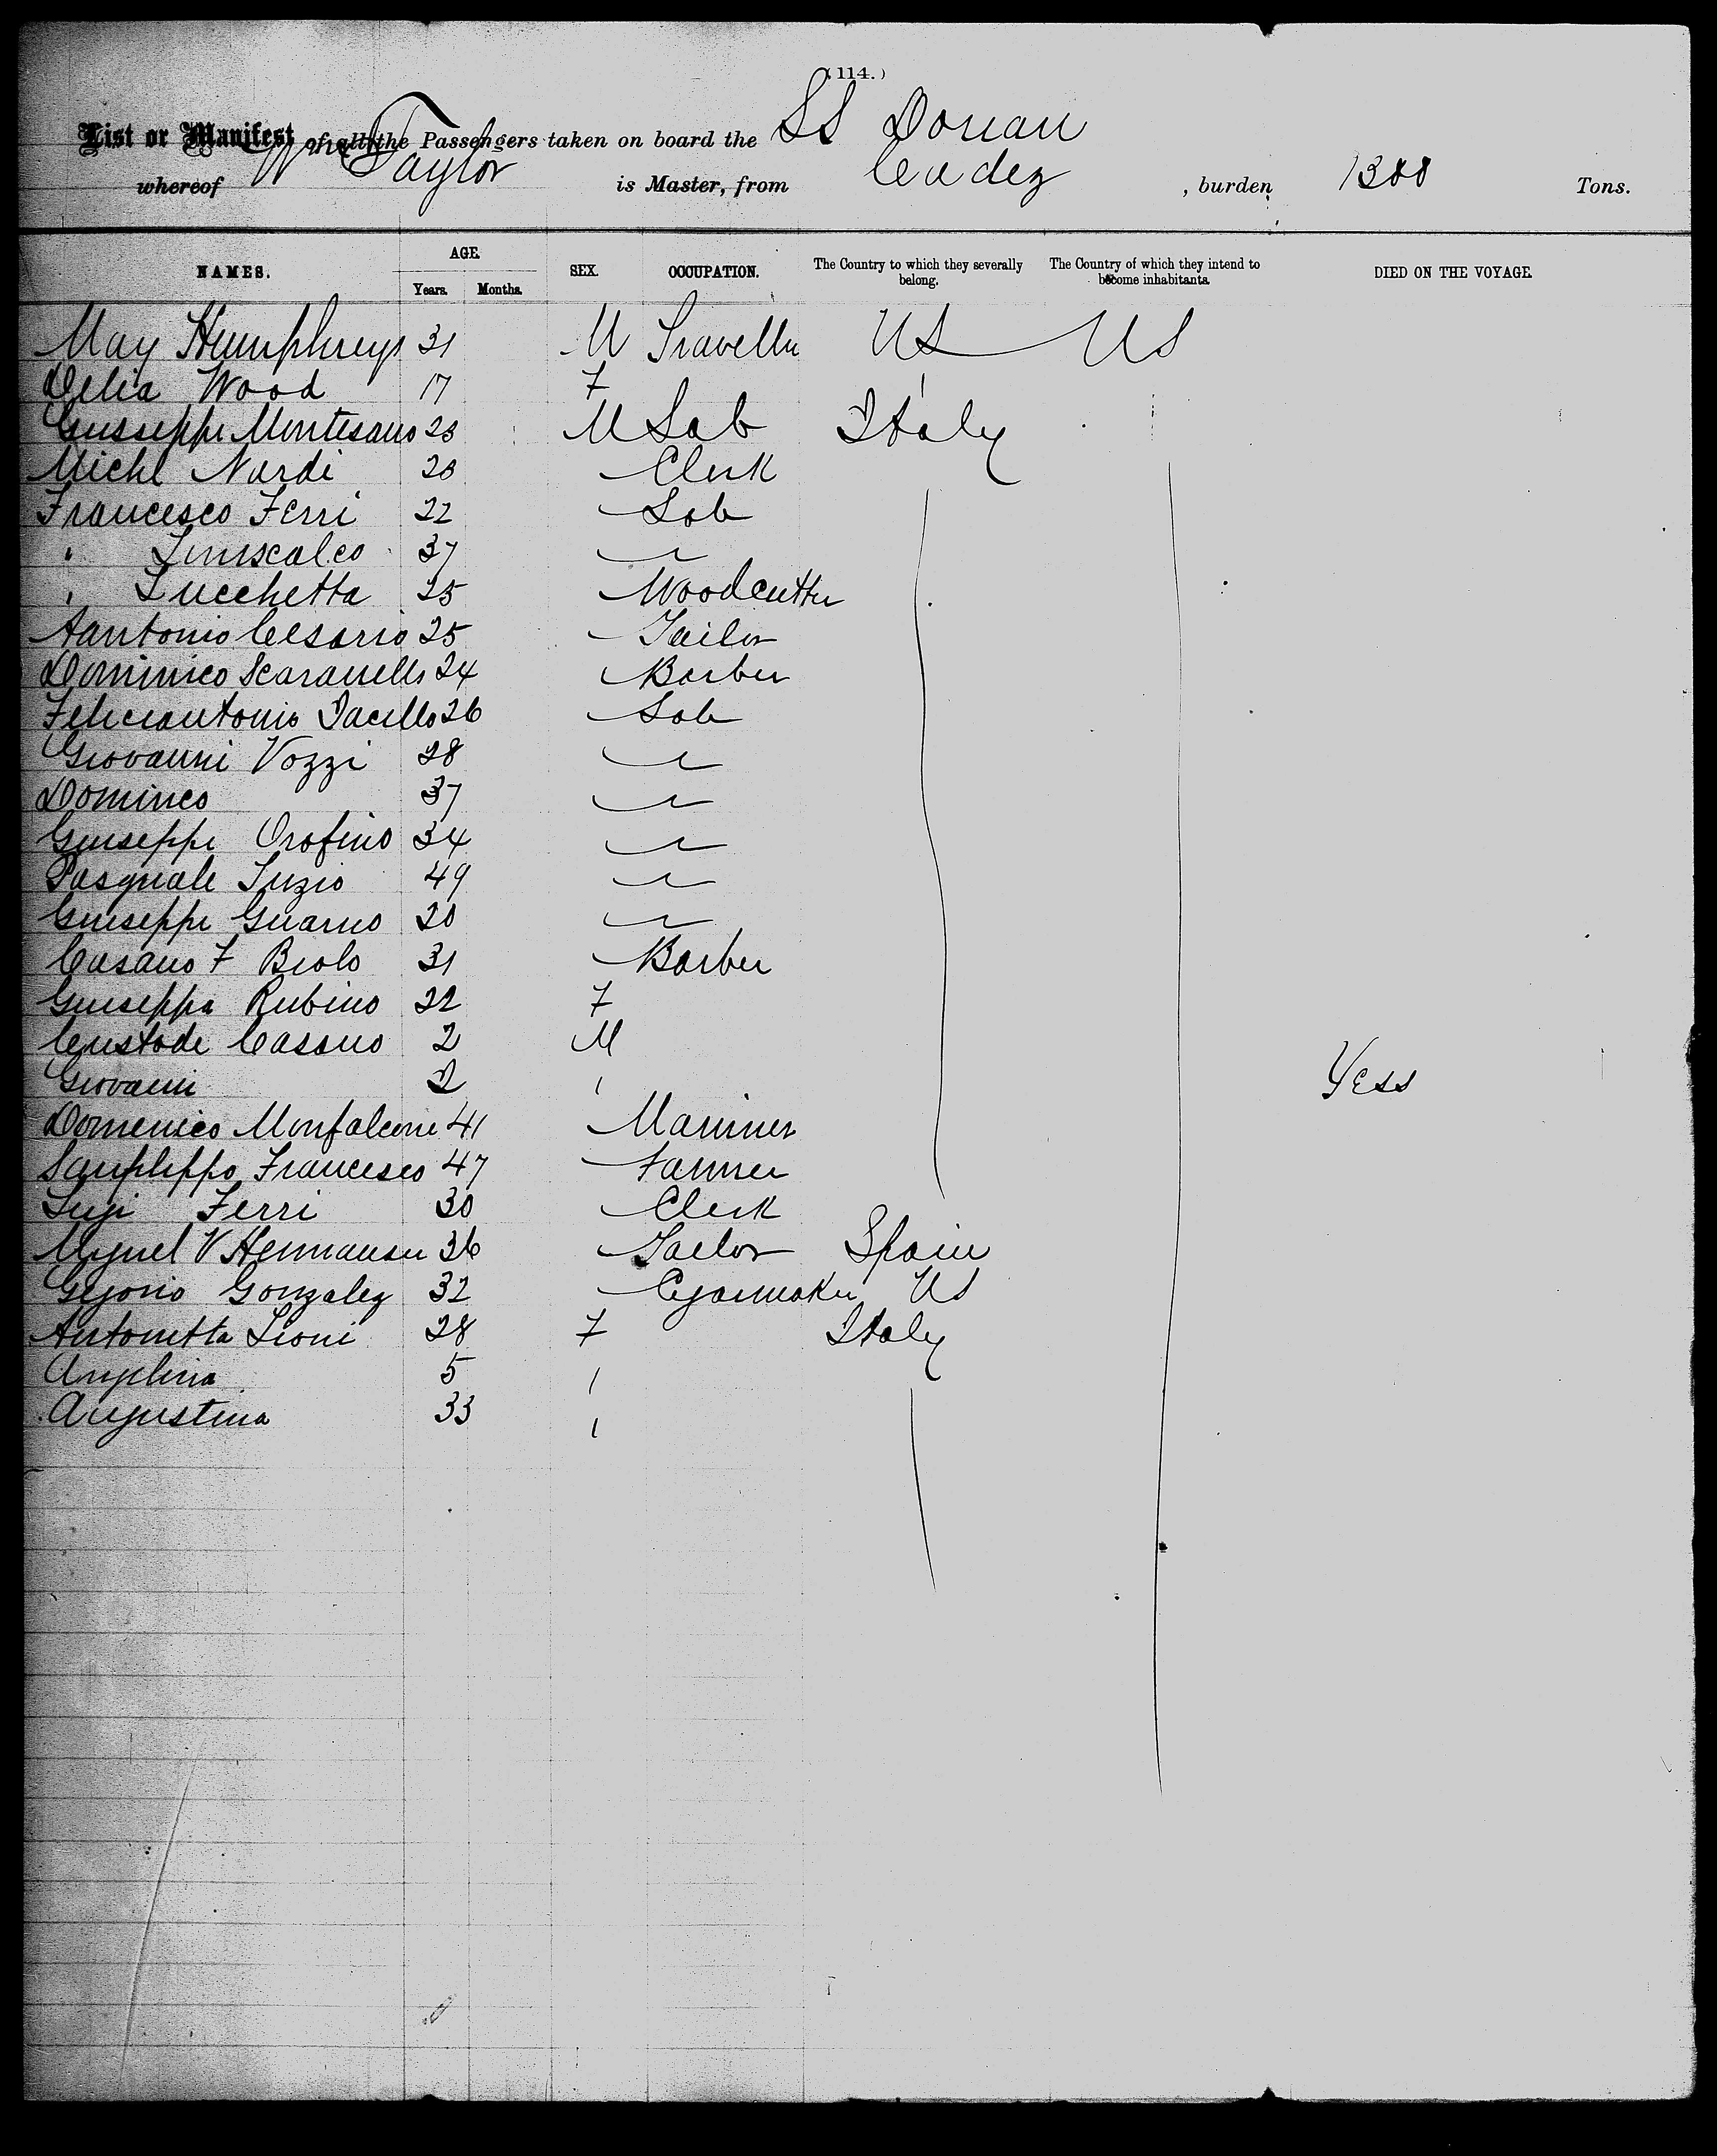 ( 114. )
List or Manifest of all the Passengers taken on board the SS Dorian
whereof Wm Taylor is Master, from Cadez , burden 1388 Tons.
NAMES. AGE. SEX. OCCUPATION. The Country to which they severally belong. The Country of which they intend to become inhabitants. DIED ON THE VOYAGE.
Years. Months.
May Humphreys 31 M Traveller US US
Delia Wood 17 F
Giusseppe Montesano 23 M Lab Italy
Michl Nardi 20 Clerk
Francesco Ferri 22 Lab
" 37
" Lucchetta 25 Woodcutter
Aantonio Cesario 25 Tailor
Dominico Scaranello 24 Barber
Feliceantonio 26 Lab
Giovanni Vozzi 28
Domineo 37
Guiseppe Orofino 34
Pasquale Luzio 49
Guiseppe Guarno 20
Casano F Biolo 31 Barber
Guiseppa Rubino 22 F
Custode Casano 2 M
Giovanni 2 " Yess
Domenico Monfalcone 41 Mariner
Francesco 47 Farmer
Luji Ferri 30 Clerk
Miguel V 36 Tailor Spain
Gonzalez 32 Cigarmaker US
Antonetta Lioni 28 F Italy
Angelina 5 "
Augustina 33 "